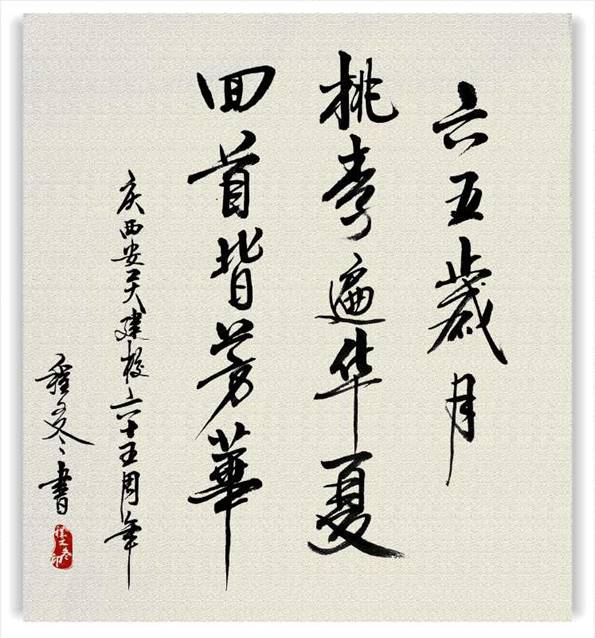 六五歲月
桃李遍华夏
回首皆芳華
庆西安工大建校六十五周年
程之冬書